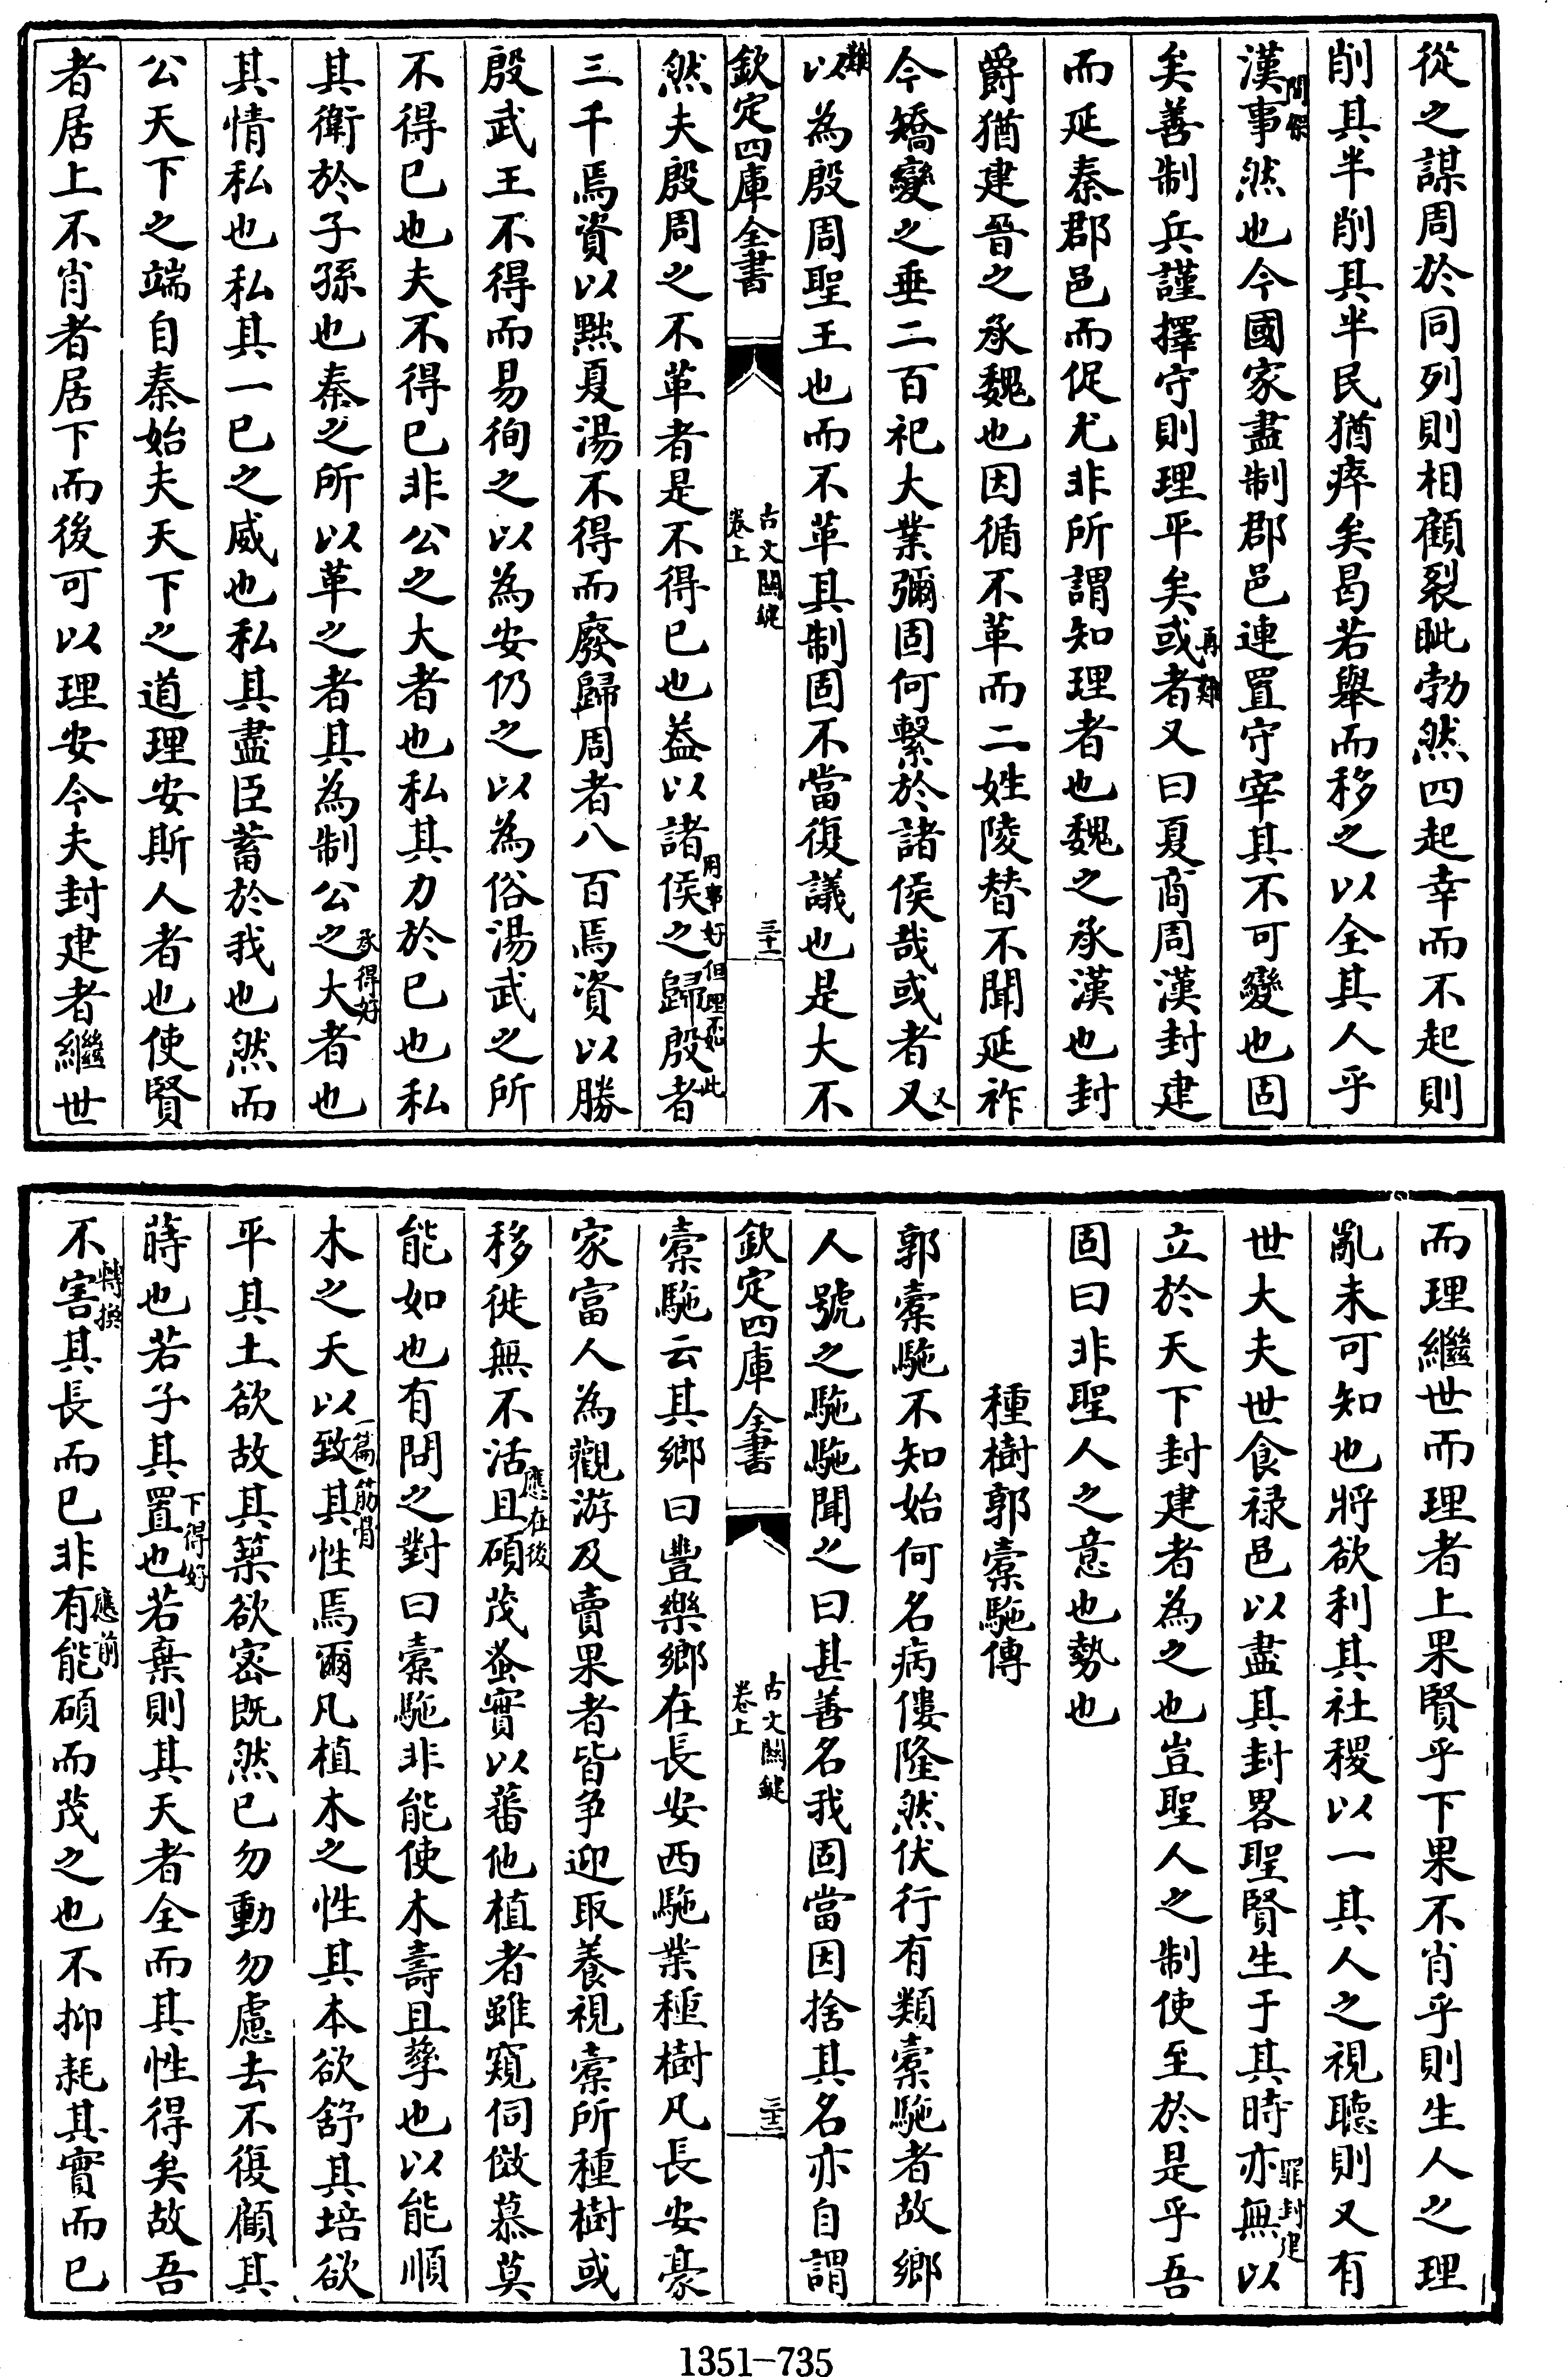 從之謀周於同列則相顧裂眦勃然四起幸而不起則
削其半削其半民猶瘁矣曷若舉而移之以全其人乎
漢事然也今國家盡制郡邑連置守宰其不可變也固
矣善制兵謹擇守則理平矣或者又曰夏商周漢封建
再難
而延秦郡邑而促尤非所謂知理者也魏之承漢也封
爵猶建晉之承魏也因循不革而二姓陵替不聞延祚
今矯變之垂二百祀大業彌固何繫於諸侯哉或者又
又難
以為殷周聖王也而不革其制固不當復議也是大不
欽定四庫全書
古文關鍵
卷上
三十一
然夫殷周之不革者是不得已也葢以諸侯之歸殷者
用事好但理不如此
三千焉資以黜夏湯不得而廢歸周者八百焉資以勝
殷武王不得而易徇之以為安仍之以為俗湯武之所
不得已也夫不得已非公之大者也私其力於已也私
其衛於子孫也秦之所以革之者其為制公之大者也
承得好
其情私也私其一已之威也私其盡臣蓄於我也然而
公天下之端自秦始夫天下之道理安斯人者也使賢
者居上不肖者居下而後可以理安今夫封建者繼世
而理繼世而理者上果賢乎下果不肖乎則生人之理
亂未可知也將欲利其社稷以一其人之視聽則又有
世大夫世食祿邑以盡其封畧聖賢生于其時亦無以
罪封建
立於天下封建者為之也豈聖人之制使至於是乎吾
固曰非聖人之意也勢也
種樹郭槖駞傳
郭槖駞不知始何名病僂隆然伏行有類槖駞者故鄉
人號之駞駞聞之曰甚善名我固當因捨其名亦自謂
欽定四庫全書
古文關鍵
卷上
三十二
槖駞云其鄉曰豐樂鄉在長安西駞業種樹凡長安豪
家富人為觀游及賣果者皆争迎取養視槖所種樹或
移徙無不活且碩茂蚤實以蕃他植者雖窺伺傚慕莫
應在後
能如也有問之對曰槖駞非能使木壽且孳也以能順
木之天以致其性焉爾凡植木之性其本欲舒其培欲
一篇筋骨
平其土欲故其築欲密既然已勿動勿慮去不復顧其
蒔也若子其置也若棄則其天者全而其性得矣故吾
下得好
不害其長而已非有能碩而茂之也不抑耗其實而已
轉換
應前
1351-735